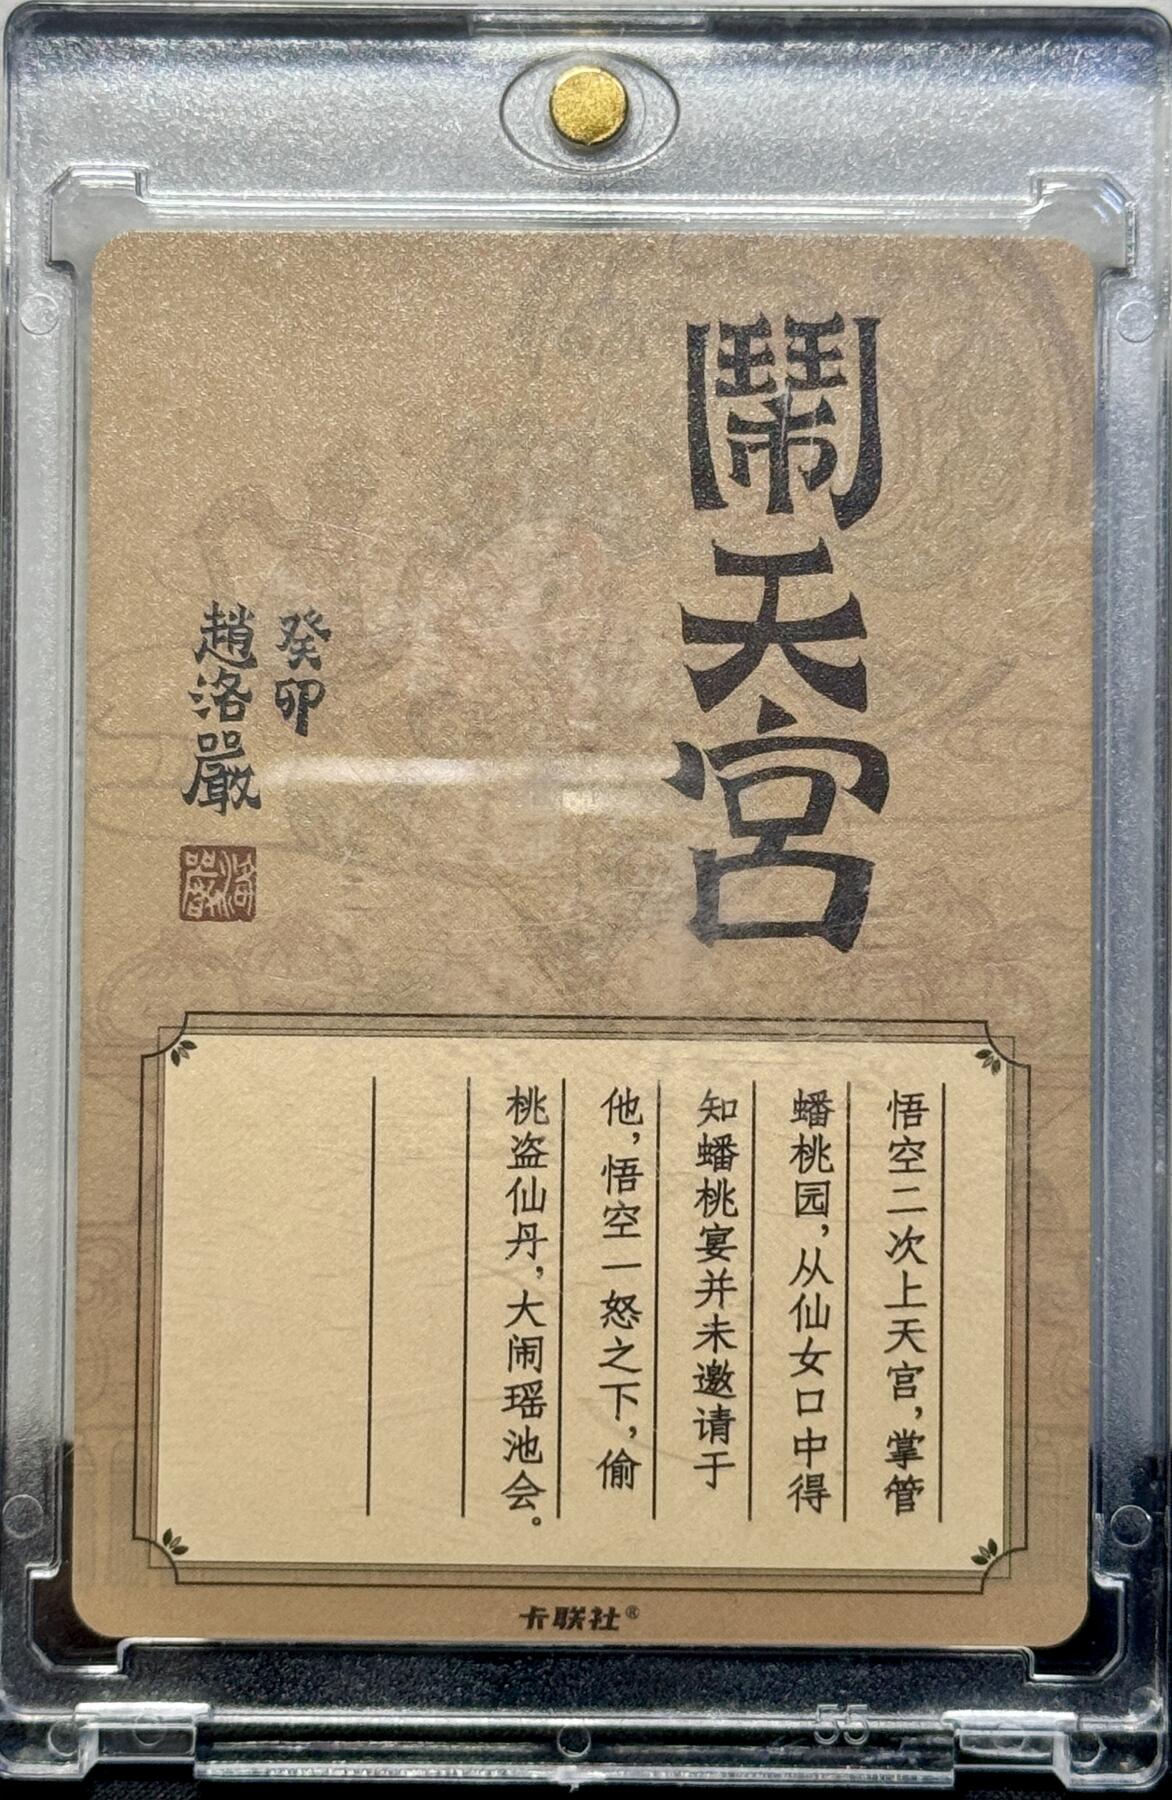 鬧天宮
癸卯
趙洛嚴
洛嚴
悟空二次上天宫，掌管
蟠桃园，从仙女口中得
知蟠桃宴并未邀请于
他，悟空一怒之下，偷
桃盗仙丹，大闹瑶池会。
卡联社®
55